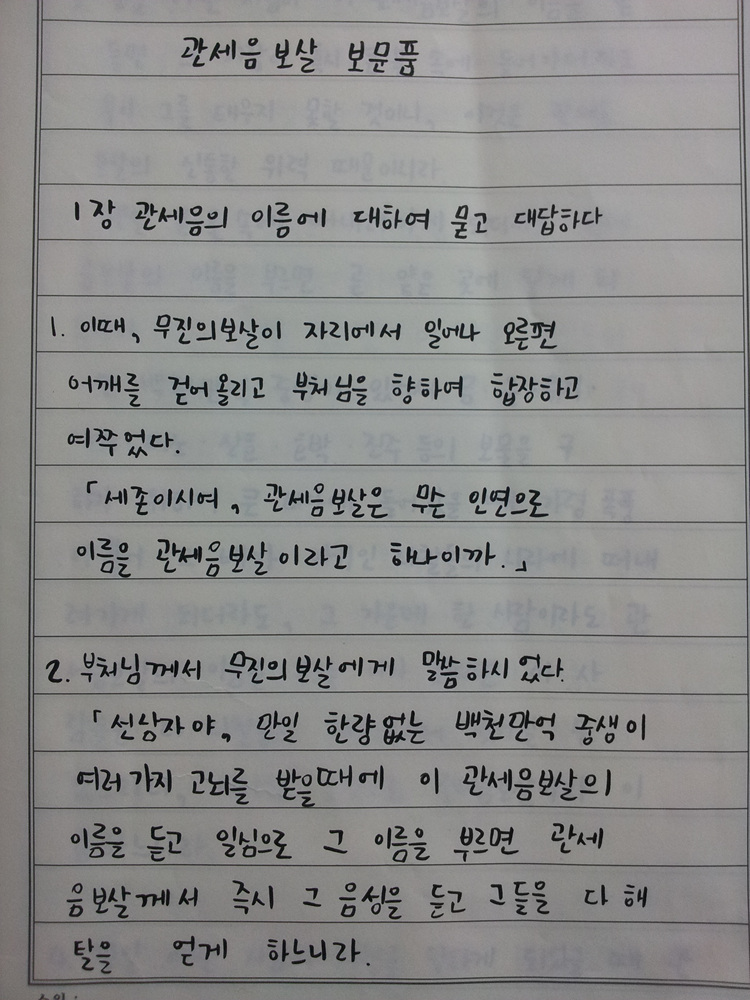 관세음보살 보문품
1장 관세음의 이름에 대하여 묻고 대답하다
1. 이때, 무진의보살이 자리에서 일어나 오른편
어깨를 걷어올리고 부처님을 향하여 합장하고
여쭈었다.
「세존이시여, 관세음보살은 무슨 인연으로
이름을 관세음보살이라고 하나이까.」
2. 부처님께서 무진의보살에게 말씀하시었다.
「선남자야, 만일 한량없는 백천만억 중생이
여러가지 고뇌를 받을때에 이 관세음보살의
이름을 듣고 일심으로 그 이름을 부르면 관세
음보살께서 즉시 그 음성을 듣고 그들을 다 해
탈을 얻게 하느니라.